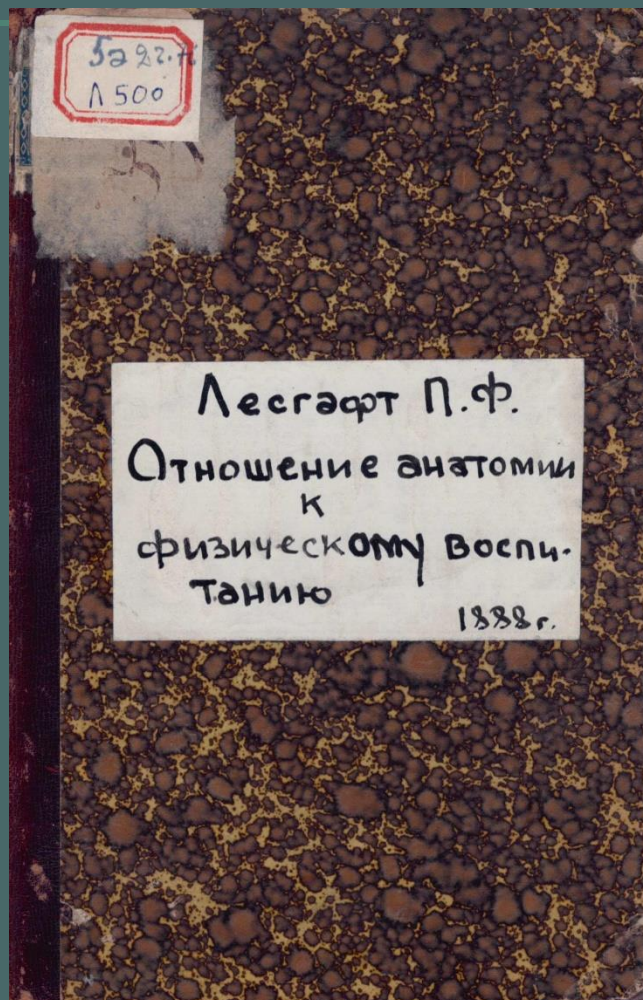 Л 500
Лесгафт П.Ф.
Отношение анатомии
к
физическому воспи-
танию
1888 г.